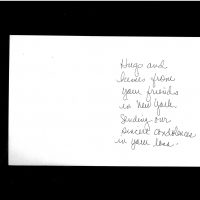 Hugs and
kisses from
your friends
in New York
Sending our
sincere condolences
in your loss.